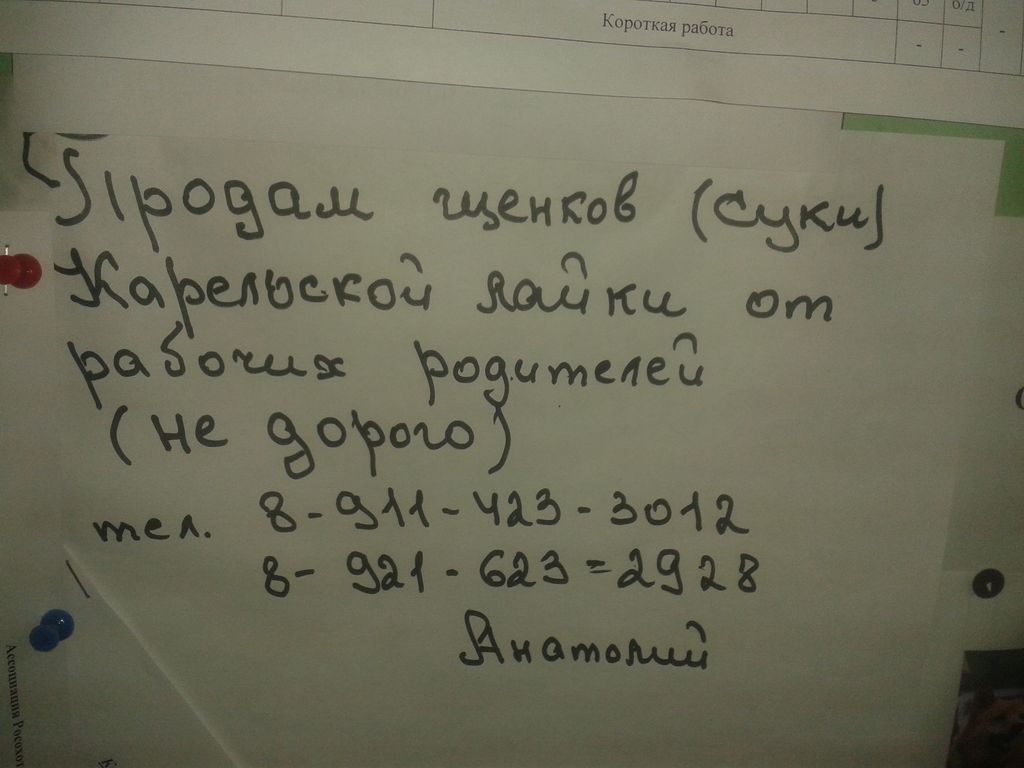 65 б/д
Короткая работа
- - -
Продам щенков (суки)
Карельской лайки от
рабочих родителей
(не дорого)
тел. 8-911-423-3012
8-921-623=2928
Анатолий
Ассоциация Росохот